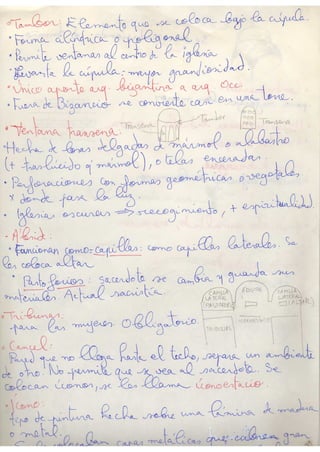 • Tambor: Elemento que se coloca bajo la cúpula.
• Forma cilíndrica o poligonal.
• Permite ventanas al centro de la iglesia
• Levanta la cúpula = mayor grandiosidad.
• Único aporte arq. bizantina a arq. Occ
• Fuera de Bizancio se convierte casi en una torre.
Tambor
Transena
Transena
• Ventana transena:
Hecha de losas delgadas de mármol o alabastro
(+ traslúcido q mármol), o telas enceradas.
• Perforaciones con formas geométricas o vegetales
x donde pasa la luz.
• Iglesias oscuras ⇒ recogimiento, + espiritualidad.
• Ábsid:
• Funcionan como = capillas: como capillas laterales. Se
les coloca altar
• Pastoforios: sacerdote se cambia y guarda sus
materiales. Actual sacristía.
CAPILLA LATERAL
ÁBSIDE
CAPILLA LATERAL
ICONOSTASIO
TRIBUNAS
• Tribunas:
para las mujeres. Obligatorio.
• Cancel:
Pared que no llega hasta el techo, separa un ambiente
de otro. No permite que se vea al sacerdote. Se
colocan íconos, se les llama iconostacio.
• Ícono:
tipo de pintura hecha sobre una lámina de madera
o metal.
Se le colocaban capas metálicas que cubren gran